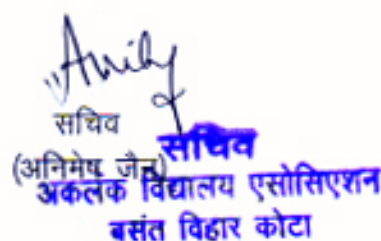 सचिव
(अनिमेष जैन)
सचिव
अकलंक विद्यालय एसोसिएशन
बसंत विहार कोटा